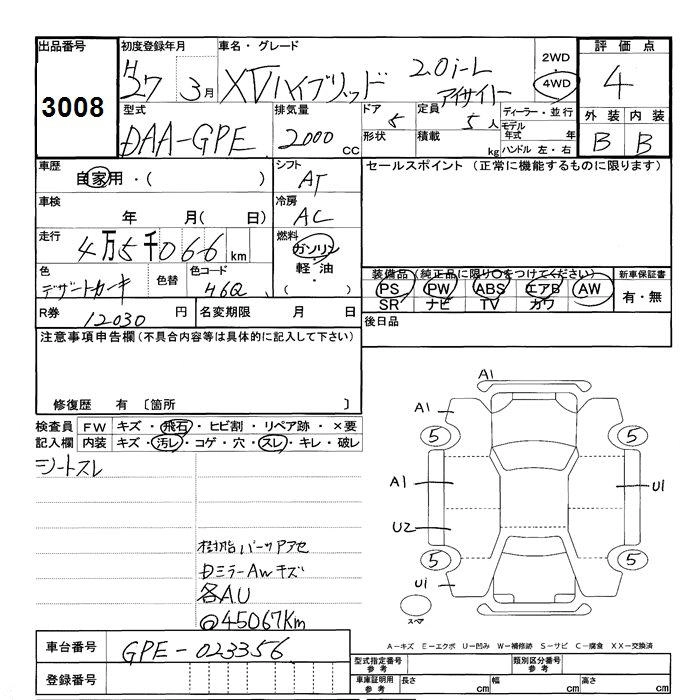 出品番号
3008
初度登録年月
H27 3月
車名・グレード
XVハイブリッド 2.0i-L アイサイト
2WD
4WD
評価点
4
型式
DAA-GPE
排気量
2000 cc
ドア
5
形状
定員
5 人
積載
kg
ディーラー・並行
モデル年式 年
ハンドル 左・右
外装 内装
B B
車歴
自家用・( )
シフト
AT
セールスポイント (正常に機能するものに限ります)
車検
年 月( 日)
冷房
AC
走行
4万5千066 km
燃料
ガソリン・軽油・( )
色
デザートカーキ
色替
色コード
46Q
装備品(純正品に限り○をつけてください)
新車保証書
PS PW ABS エアB AW
SR ナビ TV カワ
有・無
R券
12030 円
名変期限 月 日
後日品
注意事項申告欄(不具合内容等は具体的に記入して下さい)
修復歴 有 〔箇所 〕
検査員 FW キズ・飛石・ヒビ割・リペア跡・×要
記入欄 内装 キズ・汚レ・コゲ・穴・スレ・キレ・破レ
シートスレ
樹脂パーツアセ
Dミラー AWキズ
各AU
@45067Km
A1
A1
5 5
A1
U1
U2
5 5
U1
スペア
A-キズ E-エクボ U-凹み W-補修跡 S-サビ C-腐食 XX-交換済
車台番号
GPE-023356
登録番号
型式指定番号 参考
類別区分番号 参考
車庫証明用 参考
長さ cm 幅 cm 高さ cm